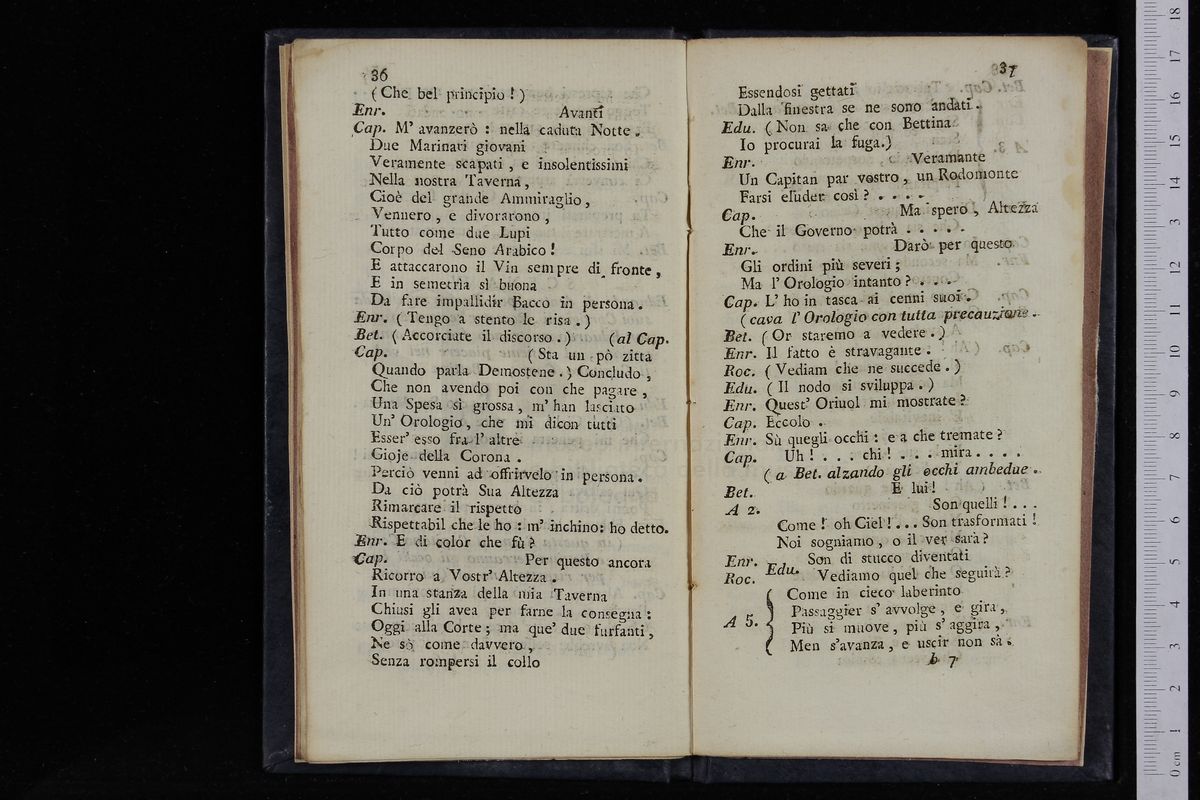 36
( Che bel principio ! )
Enr. Avanti
Cap. M' avanzerò : nella caduta Notte .
Due Marinari giovani
Veramente scapati , e insolentissimi
Nella nostra Taverna ,
Cioè del grande Ammiraglio ,
Vennero , e divorarono ,
Tutto come due Lupi
Corpo del Seno Arabico !
E attaccarono il Vin sempre di fronte ,
E in semetria sì buona
Da fare impallidir Bacco in persona .
Enr. ( Tengo a stento le risa . )
Bet. ( Accorciate il discorso . ) (al Cap.
Cap. ( Sta un pò zitta
Quando parla Demostene . ) Concludo ,
Che non avendo poi con che pagare ,
Una Spesa sì grossa , m' han lasciato
Un' Orologio , che mi dicon tutti
Esser' esso fra l' altre
Gioje della Corona .
Perciò venni ad offrirvelo in persona .
Da ciò potrà Sua Altezza
Rimarcare il rispetto
Rispettabil che le ho : m' inchino: ho detto.
Enr. E di color che fù ?
Cap. Per questo ancora
Ricorro a Vostr' Altezza .
In una stanza della mia Taverna
Chiusi gli avea per farne la consegna :
Oggi alla Corte ; ma que' due furfanti ,
Ne sò come davvero ,
Senza rompersi il collo
37
Essendosi gettati
Dalla finestra se ne sono andati .
Edu. ( Non sa che con Bettina
Io procurai la fuga.)
Enr. Veramante
Un Capitan par vostro , un Rodomonte
Farsi eluder così ? . . . .
Cap. Ma spero , Altezza
Che il Governo potrà . . . . .
Enr. Darò per questo
Gli ordini più severi ;
Ma l' Orologio intanto ? . . . .
Cap. L' ho in tasca ai cenni suoi .
( cava l' Orologio con tutta precauzione .
Bet. ( Or staremo a vedere . )
Enr. Il fatto è stravagante .
Roc. ( Vediam che ne succede . )
Edu. ( Il nodo si sviluppa . )
Enr. Quest' Oriuol mi mostrate ?
Cap. Eccolo .
Enr. Sù quegli occhi : e a che tremate ?
Cap. Uh ! . . . chi ! . . . mira . . . .
( a Bet. alzando gli occhi ambedue .
Bet. E lui !
A 2. Son quelli ! . . .
Come ! oh Ciel ! . . . Son trasformati !
Noi sogniamo , o il ver sarà ?
Enr. Son di stucco diventati
Roc. Edu. Vediamo quel che seguirà ?
Come in cieco laberinto
Passaggier s' avvolge , e gira ,
A 5. Più si muove , più s' aggira ,
Men s'avanza , e uscir non sà .
b 7